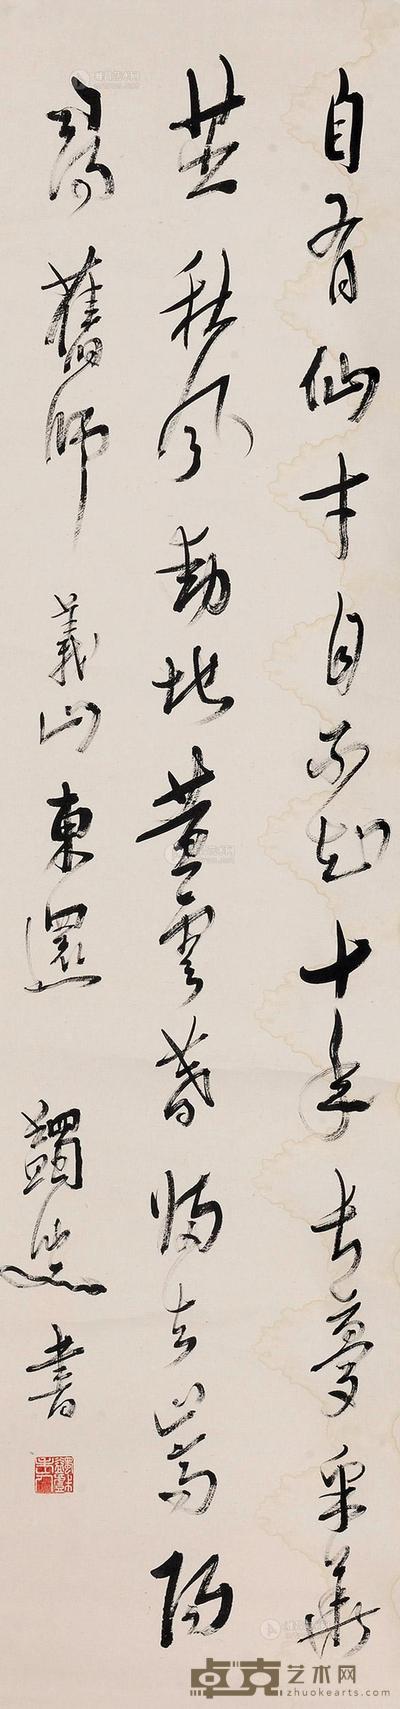 自有仙才自不知十年長夢采華
芝秋風動地黃雲暮歸去嵩陽
尋舊師 義山東還 蠲叟書
卓克艺术网
zhuokearts.com